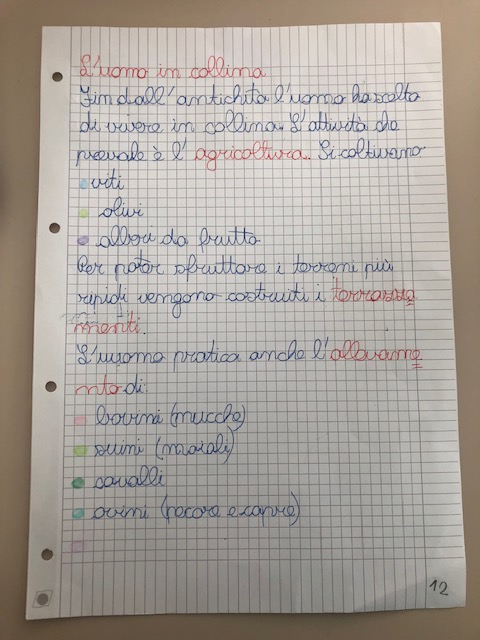 L'uomo in collina
Fin dall'antichità l'uomo ha scelto
di vivere in collina. L'attività che
prevale è l'agricoltura. Si coltivano
viti
olivi
alberi da frutta
Per poter sfruttare i terreni più
ripidi vengono costruiti i terrazza
menti.
L'uomo pratica anche l'allevame
nto di:
bovini (mucche)
suini (maiali)
cavalli
ovini (pecore e capre)
12